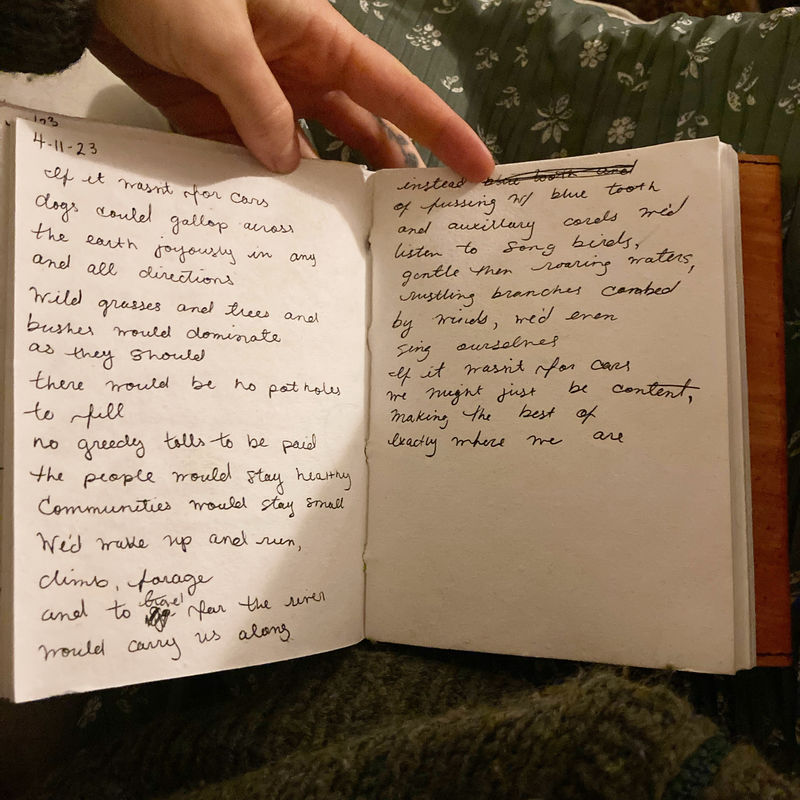 123
4-11-23
If it wasn't for cars
dogs could gallop across
the earth joyously in any
and all directions
Wild grasses and trees and
bushes would dominate
as they should
there would be no pot holes
to fill
no greedy tolls to be paid
the people would stay healthy
Communities would stay small
We'd wake up and run,
climb, forage
and to travel far the river
would carry us along
instead blue tooth and
of fussing w/ blue tooth
and auxillary cords we'd
listen to song birds,
gentle then roaring waters,
rustling branches combed
by winds, we'd even
sing ourselves
If it wasn't for cars
we might just be content,
making the best of
exactly where we are